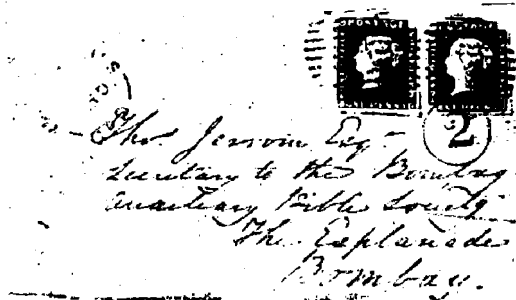 POSTAGE
POSTAGE
2
Thos Jerrom Esq
Secretary to the Bombay
Auxiliary Bible Society
The Esplanade
Bombay.